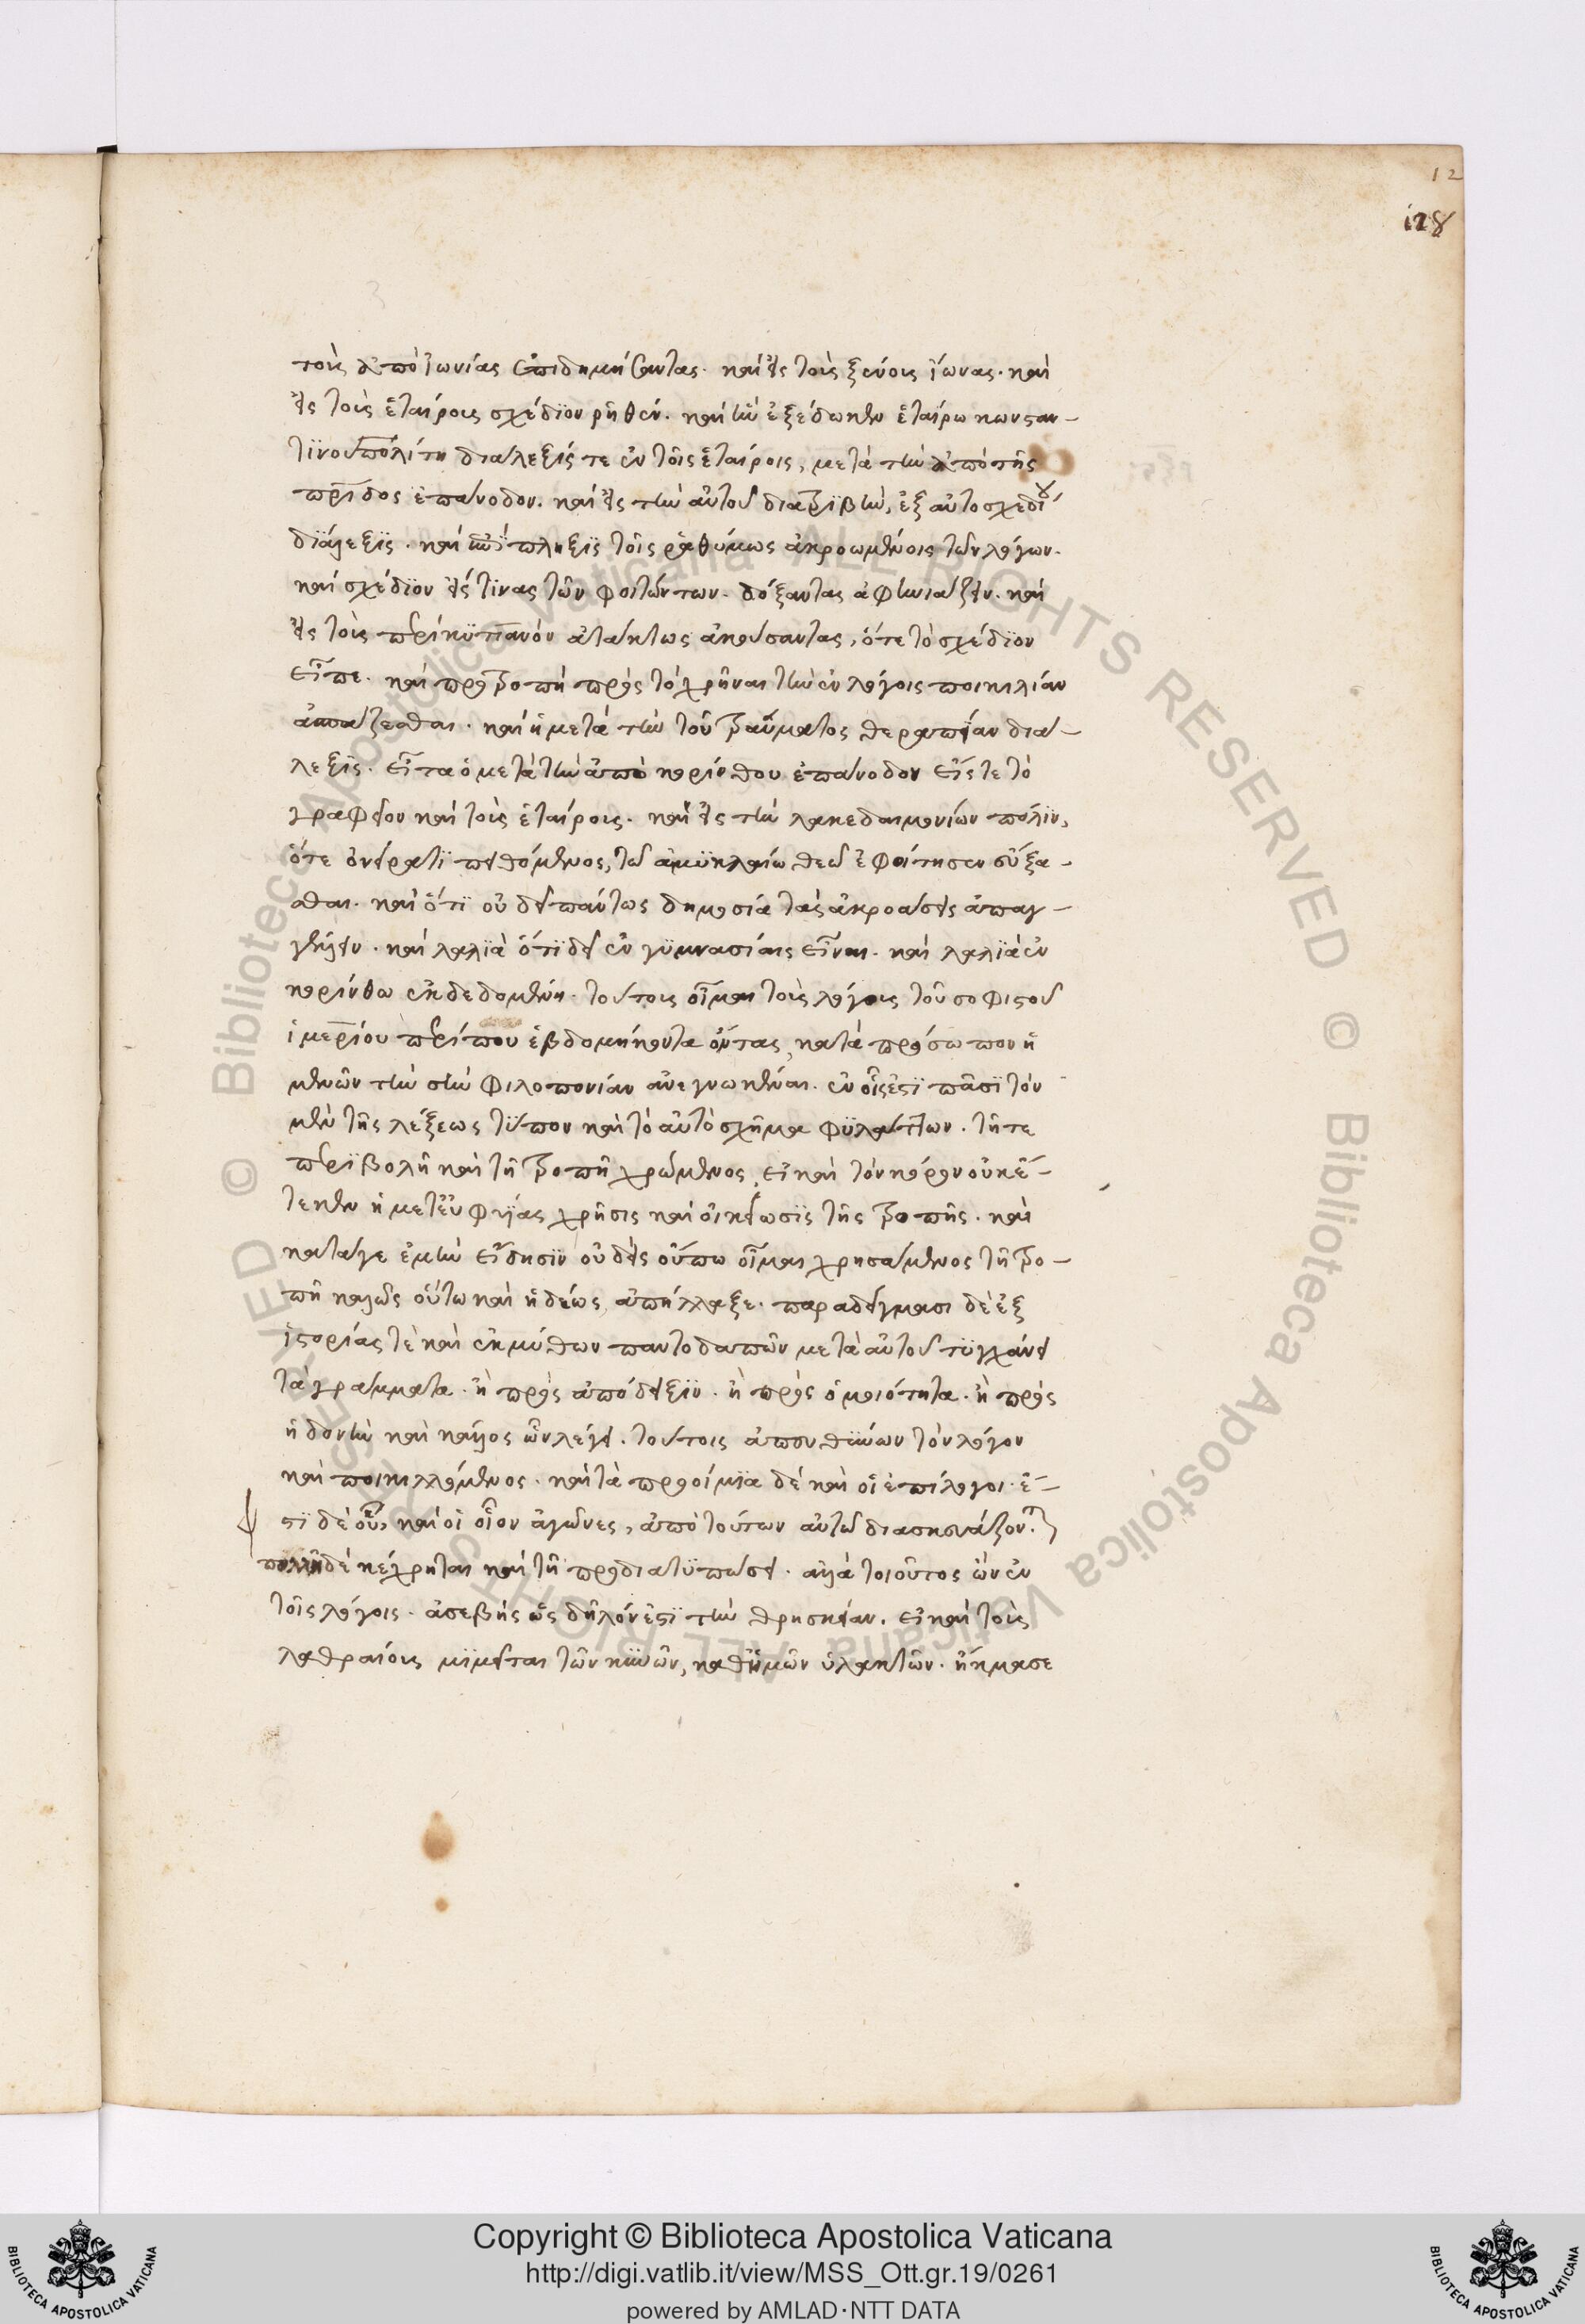 12
128
τοὺς ἀπὸ ἰωνίας ἐπιδημήσαντας. καὶ εἰς τοὺς ξένους ἴωνας. καὶ
εἰς τοὺς ἑταίρους σχέδιον ῥηθέν. καὶ ἣν ἐξέδωκεν ἑταίρω κωνσταν-
τινουπολίτη διάλεξίς τε ἐν τοῖς ἑταίροις, μετὰ τὴν ἀπὸ τῆς
πρίδος ἐπάνοδον. καὶ εἰς τὴν αὐτοῦ διατριβὴν, ἐξ αὐτοσχεδίου
διάλεξις. καὶ ἐπίπληξις τοῖς ῥαθύμως ἀκροωμένοις τῶν λόγων.
καὶ σχέδιον εἴς τινας τῶν φοιτώντων. δόξαντας ἀφηνιάζειν. καὶ
εἰς τοὺς περὶ κυπιανὸν ἀτάκτως ἀκούσαντας, ὅτε τὸ σχέδιον
εἶπε. καὶ προτροπὴ πρὸς τὸ χρῆναι τὴν ἐν λόγοις ποικιλίαν
ἀσπάζεσθαι. καὶ ἡ μετὰ τὴν τοῦ τραύματος θεραπείαν διά-
λεξις. εἶτα ὁ μετὰ τὴν ἀπὸ κορίνθου ἐπάνοδον εἴς τε τὸ
γραφεῖον καὶ τοὺς ἑταίρους. καὶ εἰς τὴν λακεδαιμονίων πόλιν,
ὅτε ὀνείρατι πειθόμενος, τῶ ἀμυκλαίω θεῶ ἐφοίτησεν εὔξα-
σθαι. καὶ ὅτι οὐ δεῖ πάντως δημοσία τὰς ἀκροάσεις ἀπαγ-
γέλλειν. καὶ λαλιὰ ὅτι δεῖ ἐν γυμνασίαις εἶναι. καὶ λαλιὰ ἐν
κορίνθω ἐκδεδομένη. τούτοις οἶμαι τοῖς λόγοις τοῦ σοφιστοῦ
ἱμερίου περίπου ἑβδομήκοντα ὄντας, κατὰ πρόσωπον ἡ
μενῶν τὴν σὴν φιλοπονίαν ἀνεγνωκέναι. ἐν οἷς ἐστὶ πᾶσι τὸν
μὲν τῆς λέξεως τύπον καὶ τὸ αὐτὸ σχῆμα φυλάττων. τῆ τε
περιβολῆ καὶ τῆ τροπῆ χρώμενος, εἰ καὶ τὸν κόρον οὐκ ἔ-
τεκεν ἡ μετ' εὐφυίας χρῆσις καὶ οἰκείωσις τῆς τροπῆς. καὶ
κατά γε ἐμὴν εἴδησιν οὐδεὶς οὔπω οἶμαι χρησάμενος τῆ τρο-
πῆ καλῶς οὕτω καὶ ἡδέως ἀπήλλαξε. παραδείγμασι δὲ ἐξ
ἱστορίας τὲ καὶ ἐκ μύθων παντοδαπῶν μετὰ αὐτοῦ τυγχάνει
τὰ γράμματα. ἢ πρὸς ἀπόδειξιν. ἢ πρὸς ὁμοιότητα. ἢ πρὸς
ἡδονὴν καὶ κάλλος ὧν λέγει. τούτοις ἀπευθύνων τὸν λόγον
καὶ ποικιλλόμενος. καὶ τὰ προοίμια δὲ καὶ οἱ ἐπίλογοι. ἔ-
στι δὲ οὗ, καὶ οἱ οἷον ἀγῶνες, ἀπὸ τούτων αὐτῶ διασκευάζονται
πολλῆ δὲ κέχρηται καὶ τῆ προδιατυπώσει. ἀλλὰ τοιοῦτος ὢν ἐν
τοῖς λόγοις. ἀσεβὴς ὡς δῆλόν ἐστι τὴν θρησκείαν. εἰ καὶ τοὺς
λαθραίους μιμεῖται τῶν κυνῶν, καθ' ἡμῶν ὑλακτῶν. ἤκμασε
Copyright © Biblioteca Apostolica Vaticana
http://digi.vatlib.it/view/MSS_Ott.gr.19/0261
powered by AMLAD·NTT DATA